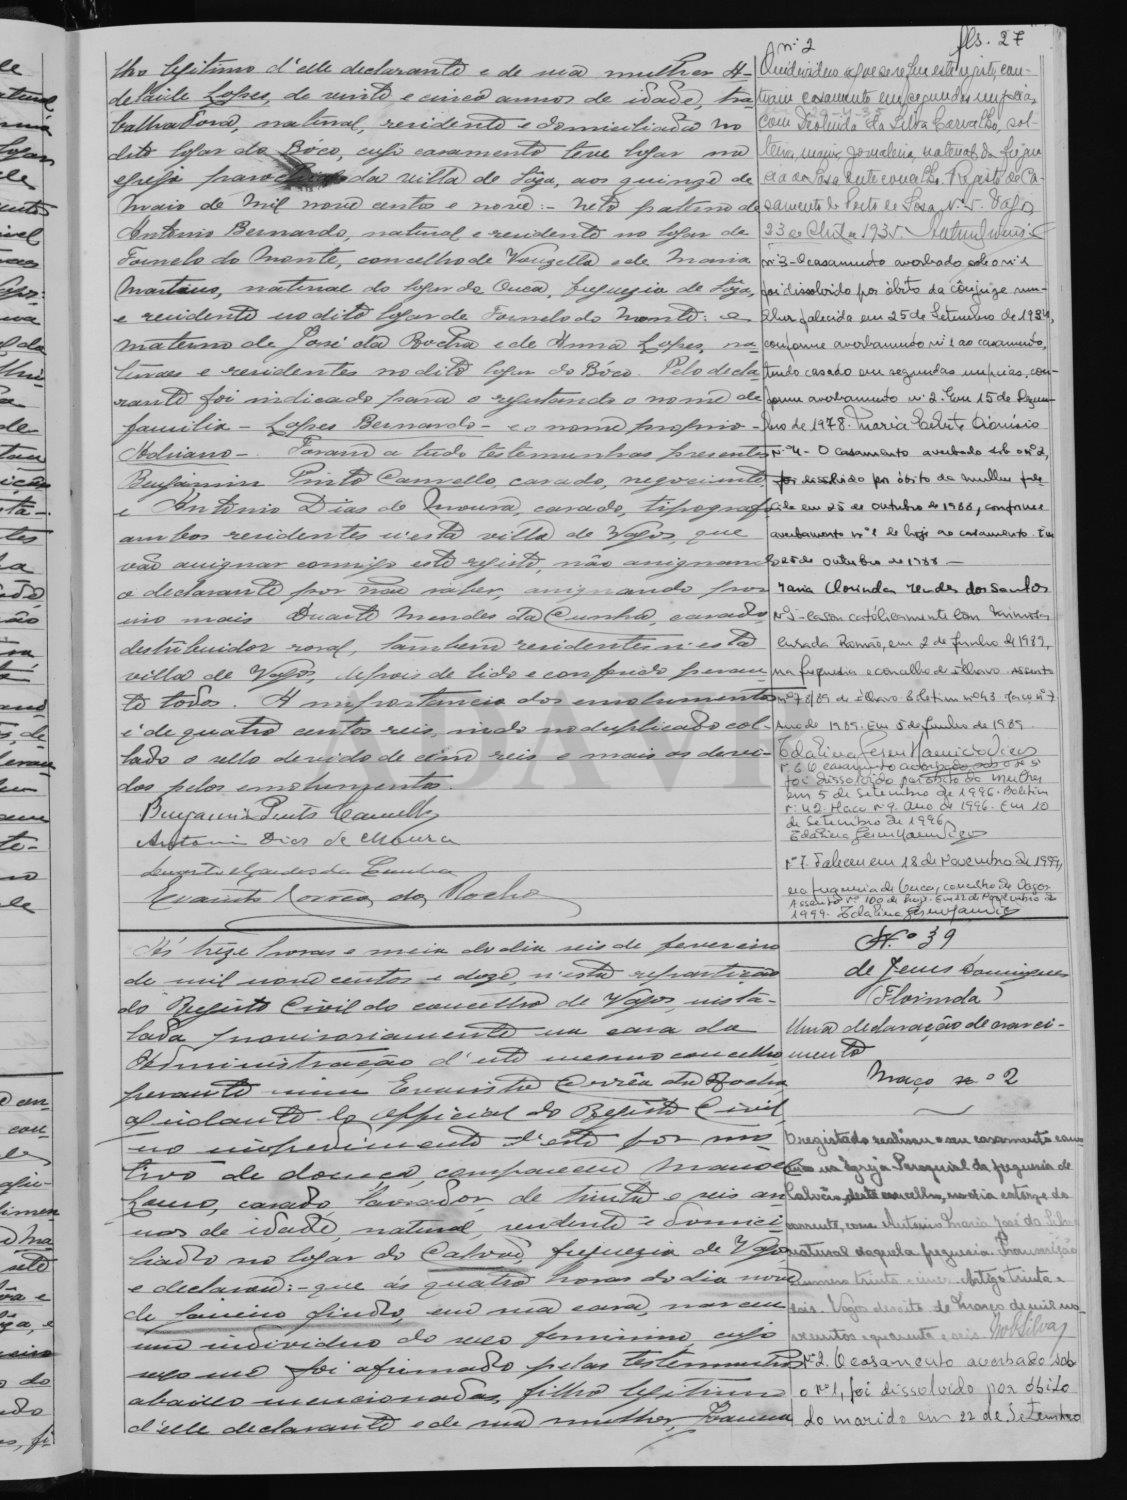 fls. 27
lho legitimo d'elle declarante e de sua mulher A-
delaide Lopes, de vinte e cinco annos de idade, tra-
balhadora, natural, residente e domiciliada no
dito logar do Boco, cujo casamento teve logar na
egreja parochial da villa de Sôza, aos quinze de
Maio de mil nove centos e nove:- Neto paterno de
Antonio Bernardo, natural e residente no logar de
Fornelo do Monte, concelho de Vouzella e de Maria
Martins, natural do logar de Ouca, freguezia de Sôza,
e residente no dito logar de Fornelo do Monte: e
materno de José da Rocha e de Anna Lopes, na-
turaes e residentes no dito logar do Bôco. Pelo decla-
rante foi indicado para o registando o nome de
familia - Lopes Bernardo - e o nome proprio -
Adriano -. Foram a tudo testemunhas presentes
Benjamim Pinto Camello, casado, negociante,
e Antonio Dias de Moura, casado, tipografo
ambos residentes n'esta villa de Vagos, que
vão assignar comigo este registo, não assignando
o declarante por não saber, assignando por
isso mais Duarte Mendes da Cunha, casado,
destribuidor rural, tambem residente n'esta
villa de Vagos, depois de lido e conferido peran-
te todos. A importancia dos emolumentos
é de quatro centos reis, indo no duplicado col-
lado o sello devido de cem reis e mais os devi-
dos pelos emolumentos.
Benjamim Pinto Camello
Antonio Dias de Moura
Duarte Mendes da Cunha
Evaristo Corrêa da Rocha
nº 2
O individuo a que se refere este registo con-
traiu casamento em segundas nupcias,
com Deolinda da Silva Carvalho, sol-
teira, maior, jornaleira, natural da fregue-
sia de Sosa deste concelho. Registo de Ca-
samento do Posto de Sosa nº 5. Vagos
23 de Abril de 1935.
nº 3 - O casamento averbado sob o nº 1
foi dissolvido por óbito da cônjuge mu-
lher falecida em 25 de Setembro de 1934,
conforme averbamento nº 1 ao casamento,
tendo casado em segundas nupcias, con-
forme averbamento nº 2. Em 15 de Dezem-
bro de 1978. Maria Celeste Dionísio
Nº 4 - O casamento averbado sob o nº 2,
foi dissolvido por óbito da mulher fale-
cida em 25 de Outubro de 1988, conforme
averbamento nº 1 de hoje ao casamento. Em
25 de Outubro de 1988 -
Maria Clorinda Mendes dos Santos
Nº 5 - Casou catòlicamente com
Casada Romão, em 2 de Junho de 1989,
na freguesia e concelho de Ílhavo. Assento
nº 78/89 de Ílhavo. Boletim nº 43 Maço nº 7
Ano de 1989. Em 5 de Junho de 1989
Nº 6 O casamento averbado sob o nº 5
foi dissolvido por óbito da mulher
em 5 de Setembro de 1996. Boletim
nº 42. Maço nº 9. Ano de 1996. Em 10
de Setembro de 1996
Nº 7. Faleceu em 18 de Novembro de 1999,
na freguesia de Ouca, concelho de Vagos
Assento nº 100 de hoje. Em 22 de Novembro de
1999.
Ás treze horas e meia do dia seis de fevereiro
de mil nove centos e doze, n'esta repartição
do Registo Civil do concelho de Vagos, insta-
lada provisoriamente na casa da
Administração d'este mesmo concelho
perante mim Evaristo Corrêa da Rocha
ajudante do official do Registo Civil
no impedimento d'este por mo-
tivo de doença, compareceu Manoel
Lauro, casado, lavrador, de trinta e seis an-
nos de idade, natural, residente e domici-
liado no logar do Calvão, freguezia de Vagos
e declarou:- que ás quatro horas do dia nove
de Janeiro findo, em sua casa, nasceu
um individuo do sexo feminino, cujo
sexo me foi afirmado pelas testemunhas
abaixo mencionadas, filha legitima
d'elle declarante e de sua mulher,
N.º 39
de Jesus Domingues
(Florinda)
Uma declaração de nasci-
mento
Maço nº 2
O registado realisou o seu casamento cano-
nico na Igreja Paroquial da freguesia de
Calvão, deste concelho, no dia catorze do
corrente, com Antonio Maria José da Silva
natural daquela freguesia. Transcrição
numero trinta e cinco. Artigo trinta e
seis. Vagos dezoito de Março de mil no-
vecentos e quarenta e seis.
Nº 2. O casamento averbado sob
o nº 1, foi dissolvido por óbito
do marido em 22 de Setembro